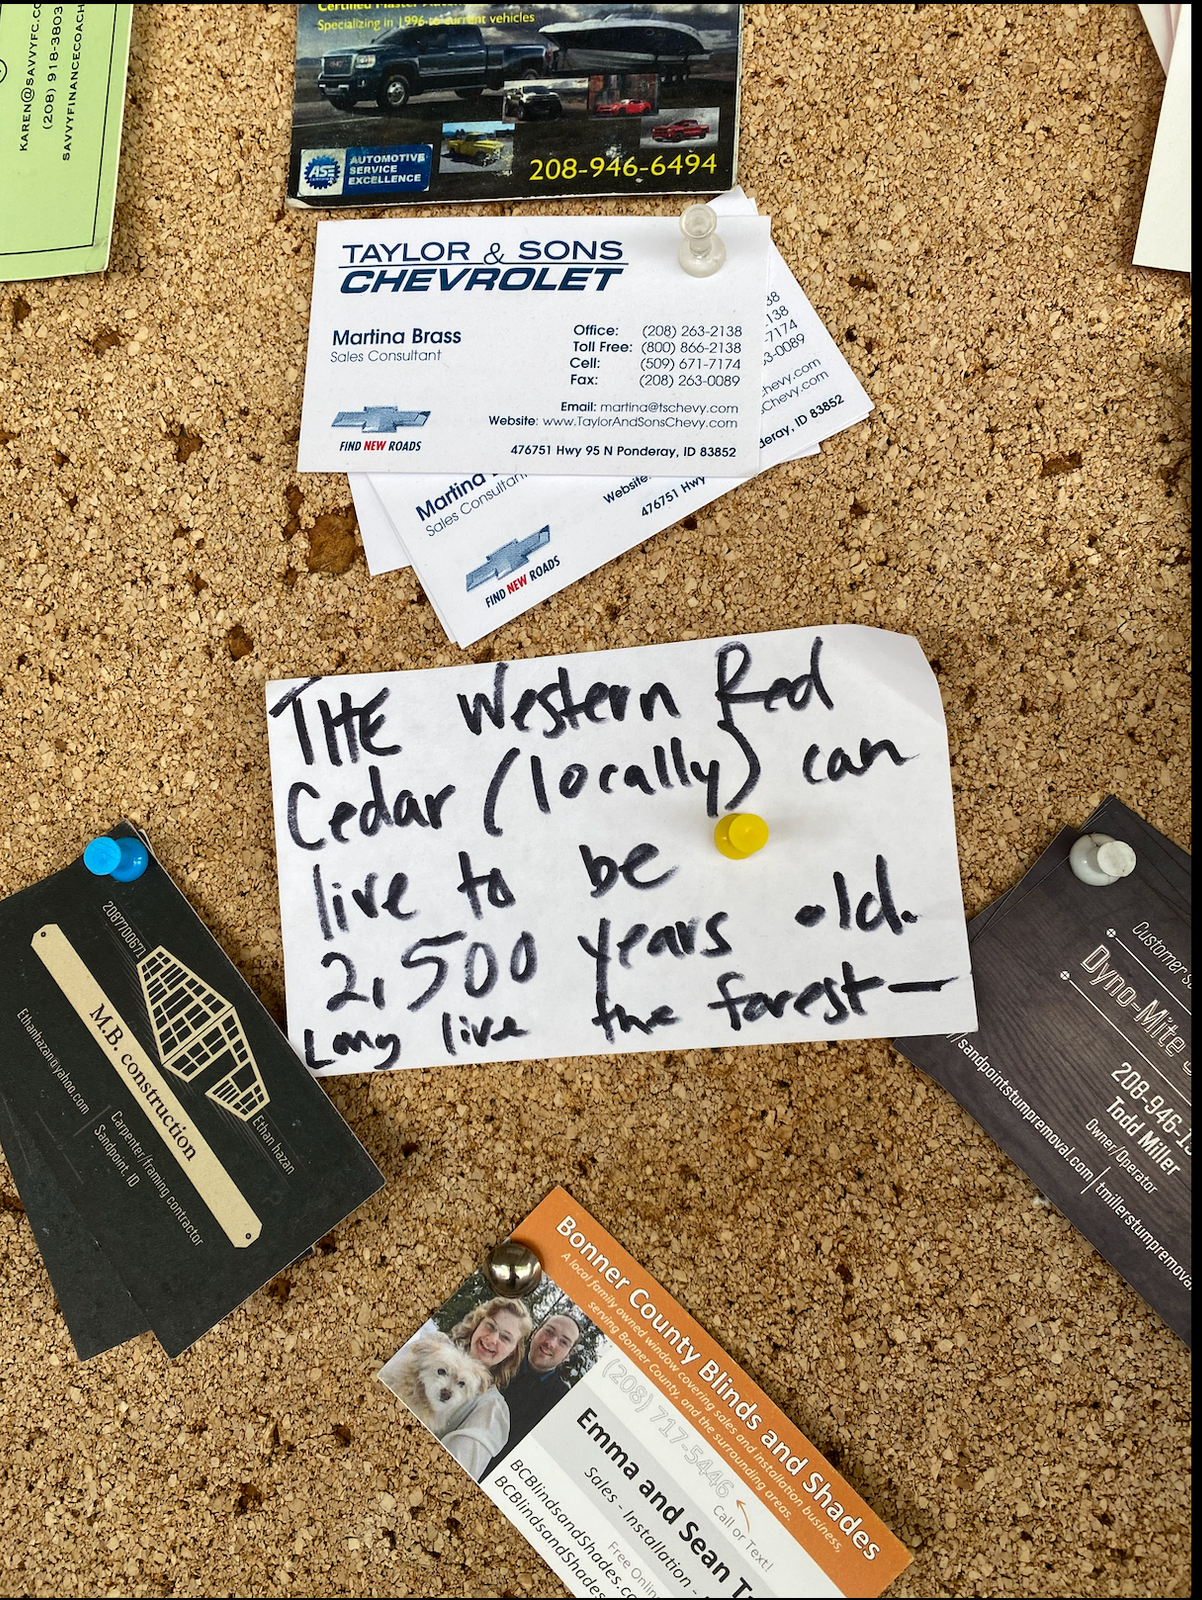 KAREN@SAVVYFC.C
(208) 918-3803
SAVVYFINANCECOACH
Specializing in 1996 to current vehicles
ASE
AUTOMOTIVE
SERVICE
EXCELLENCE
208-946-6494
TAYLOR & SONS
CHEVROLET
Martina Brass
Sales Consultant
Office: (208) 263-2138
Toll Free: (800) 866-2138
Cell: (509) 671-7174
Fax: (208) 263-0089
Email: martina@tschevy.com
Website: www.TaylorAndSonsChevy.com
FIND NEW ROADS
476751 Hwy 95 N Ponderay, ID 83852
38
138
7174
3-0089
chevy.com
sChevy.com
deray, ID 83852
Martina
Sales Consultant
Website:
476751 Hwy
FIND NEW ROADS
THE Western Red
Cedar (locally) can
live to be
2,500 years old.
Long live the forest—
2087700671
M.B. construction
Ethan hazan
Ethanhazan@yahoo.com
Carpenter/framing contractor
Sandpoint, ID
Customer s
Dyno-Mite
208-946-1
Todd Miller
Owner/Operator
/sandpointstumpremoval.com | tmillerstumpremova
Bonner County Blinds and Shades
A local family owned window covering sales and installation business,
serving Bonner County, and the surrounding areas.
(208) 717-5446
Call or Text!
Emma and Sean T
Sales - Installation -
Free Onlin
BCBlindsandShades.co
BCBlindsandShades